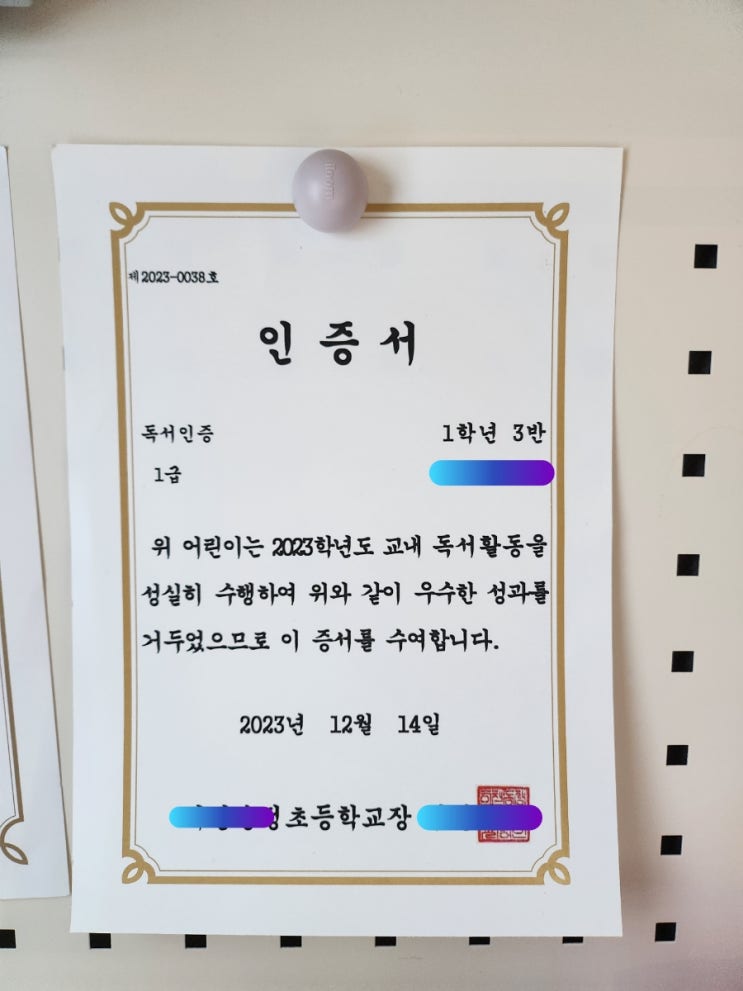 iloom
제2023-0038호
인 증 서
독서인증
1학년 3반
1급
위 어린이는 2023학년도 교내 독서활동을
성실히 수행하여 위와 같이 우수한 성과를
거두었으므로 이 증서를 수여합니다.
2023년 12월 14일
초등학교장